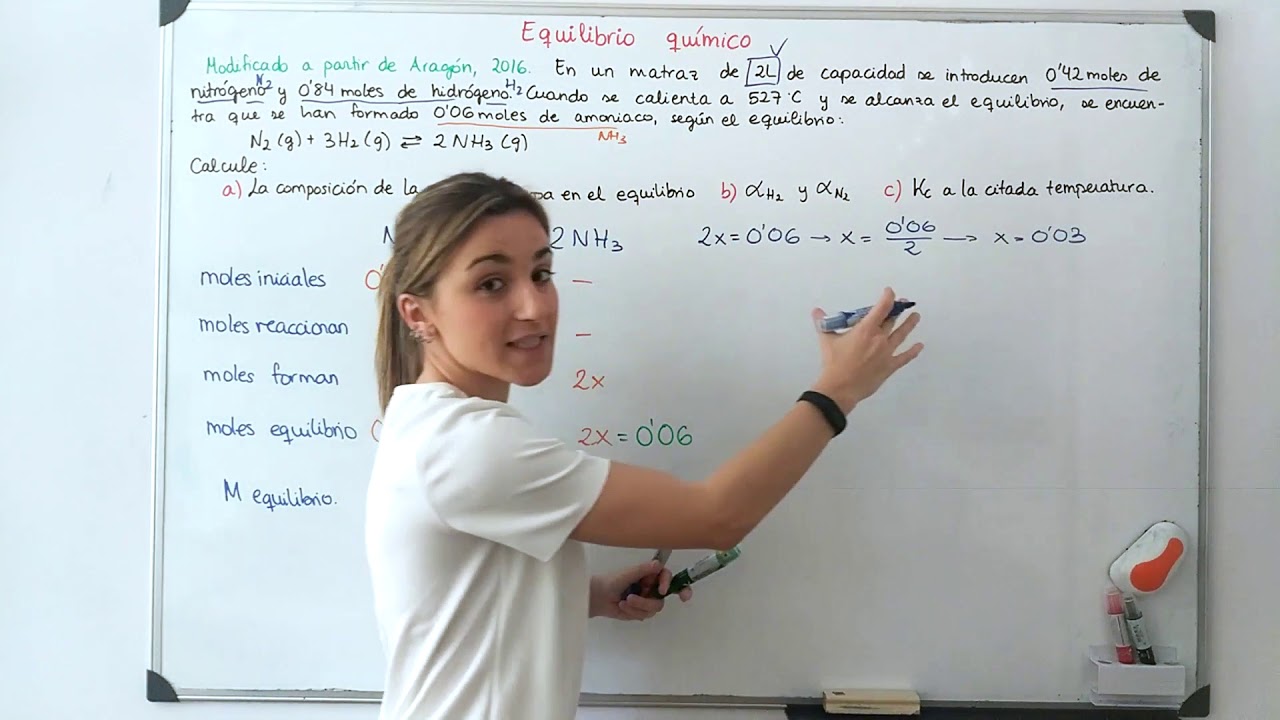 Equilibrio químico
Modificado a partir de Aragón, 2016. En un matraz de 2L de capacidad se introducen 0'42 moles de
N2 H2
nitrógeno y 0'84 moles de hidrógeno. Cuando se calienta a 527ºC y se alcanza el equilibrio, se encuen-
tra que se han formado 0'06 moles de amoniaco, según el equilibrio:
NH3
N2 (g) + 3H2 (g) ⇄ 2 NH3 (g)
Calcule:
a) La composición de la en el equilibrio b) αH2 y αN2 c) Kc a la citada temperatura.
2 NH3 2x = 0'06 → x = 0'06/2 → x = 0'03
moles iniciales –
moles reaccionan –
moles forman 2x
moles equilibrio 2x = 0'06
M equilibrio.